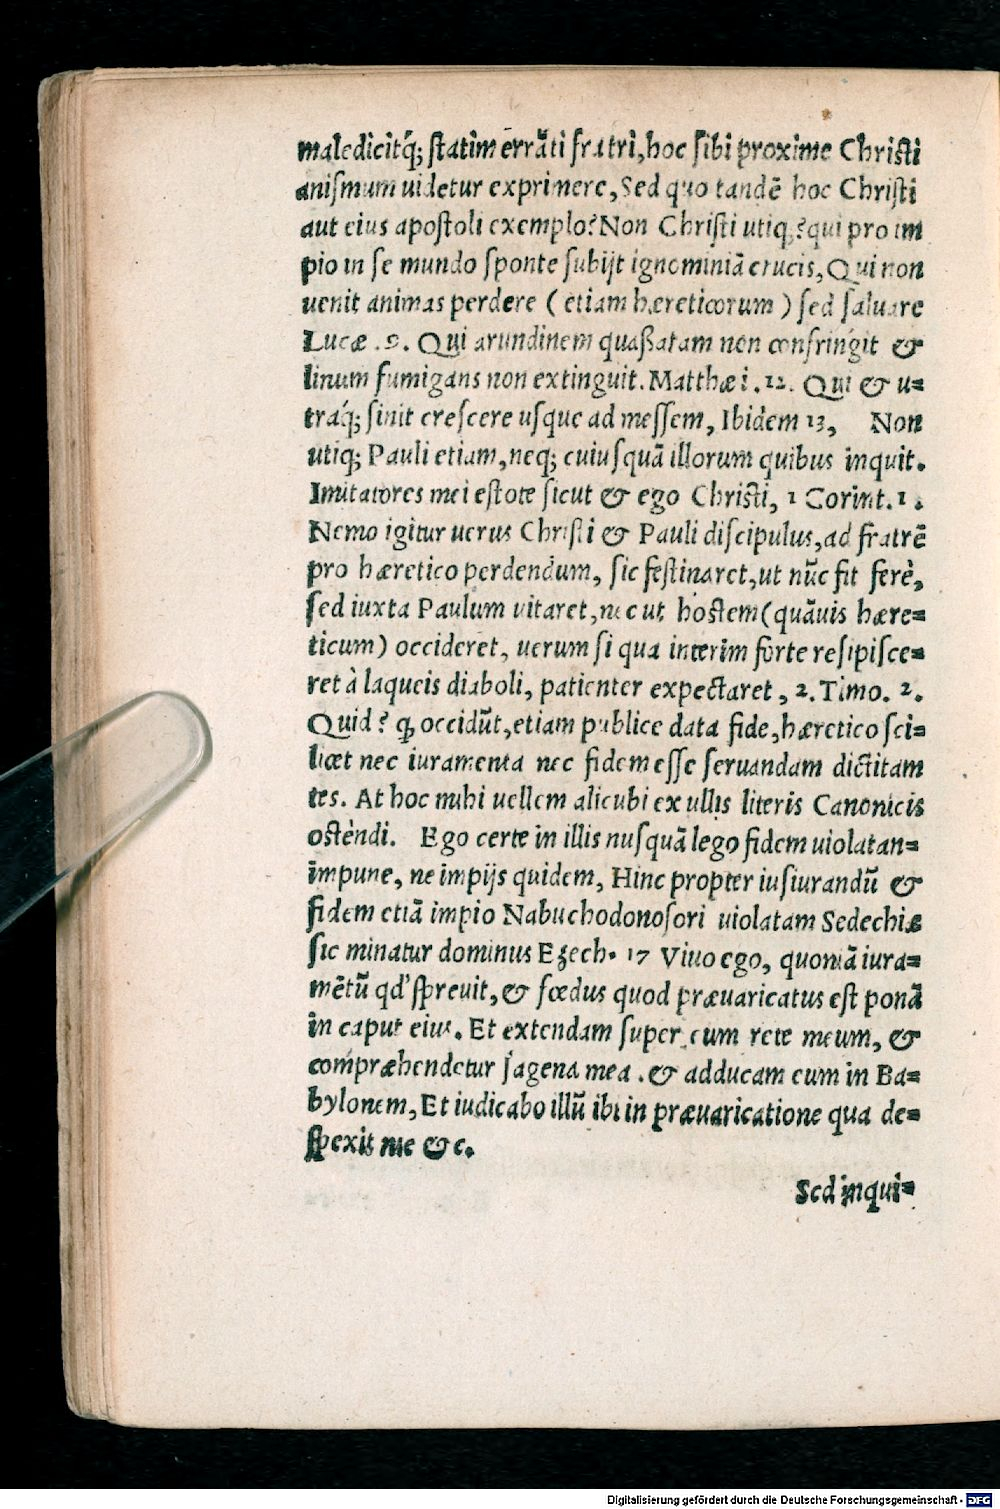 maledicitq́; statim errāti fratri, hoc sibi proxime Christi
anismum uidetur exprimere, Sed quo tandē hoc Christi
aut eius apostoli exemplo? Non Christi utiq;? qui pro im
pio in se mundo sponte subijt ignominiā crucis, Qui non
uenit animas perdere ( etiam hæreticorum ) sed saluare
Lucæ .9. Qui arundinem quaßatam non confringit &
linum fumigans non extinguit. Matthæi .12. Qui & u=
traq́; sinit crescere usque ad messem, Ibidem 13, Non
utiq; Pauli etiam, neq; cuiusquā illorum quibus inquit.
Imitatores mei estote sicut & ego Christi, 1 Corint. 1.
Nemo igitur uerus Christi & Pauli discipulus, ad fratrē
pro hæretico perdendum, sic festinaret, ut nūc fit ferè,
sed iuxta Paulum vitaret, nec ut hostem (quāuis hære=
ticum) occideret, uerum si qua interim forte resipisce=
ret à laqueis diaboli, patienter expectaret, 2. Timo. 2.
Quid? ꝙ occidūt, etiam publice data fide, hæretico sci=
licet nec iuramenta nec fidem esse seruandam dictitam
tes. At hoc mihi uellem alicubi ex ullis literis Canonicis
ostèndi. Ego certe in illis nusquā lego fidem uiolatan=
impune, ne impijs quidem, Hinc propter iusiurandū &
fidem etiā impio Nabuchodonosori uiolatam Sedechiæ
sic minatur dominus Ezech. 17 Viuo ego, quoniā iura=
mētū qd' spreuit, & fœdus quod præuaricatus est ponā
in caput eius. Et extendam super eum rete meum, &
compræhendetur sagena mea . & adducam eum in Ba=
bylonem, Et iudicabo illū ibi in præuaricatione qua de=
spexit me &c.
Sed inqui=
Digitalisierung gefördert durch die Deutsche Forschungsgemeinschaft - DFG